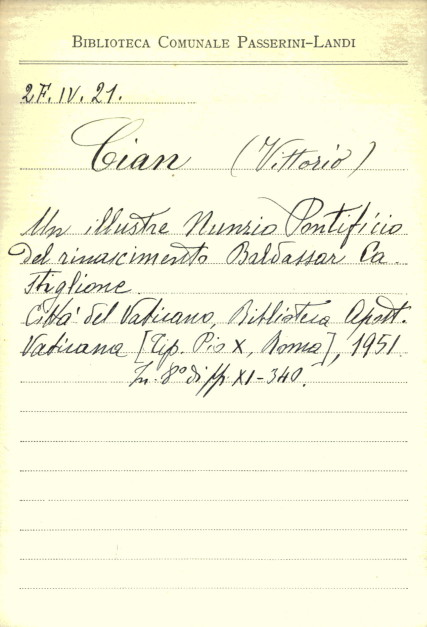 BIBLIOTECA COMUNALE PASSERINI-LANDI
2F.IV.21.
Cian (Vittorio)
Un illustre Nunzio Pontificio
del rinascimento Baldassar Ca-
stiglione.
Città del Vaticano, Biblioteca Apost.
Vaticana [Tip. Pio X, Roma], 1951.
In-8° di pp. XI-340.